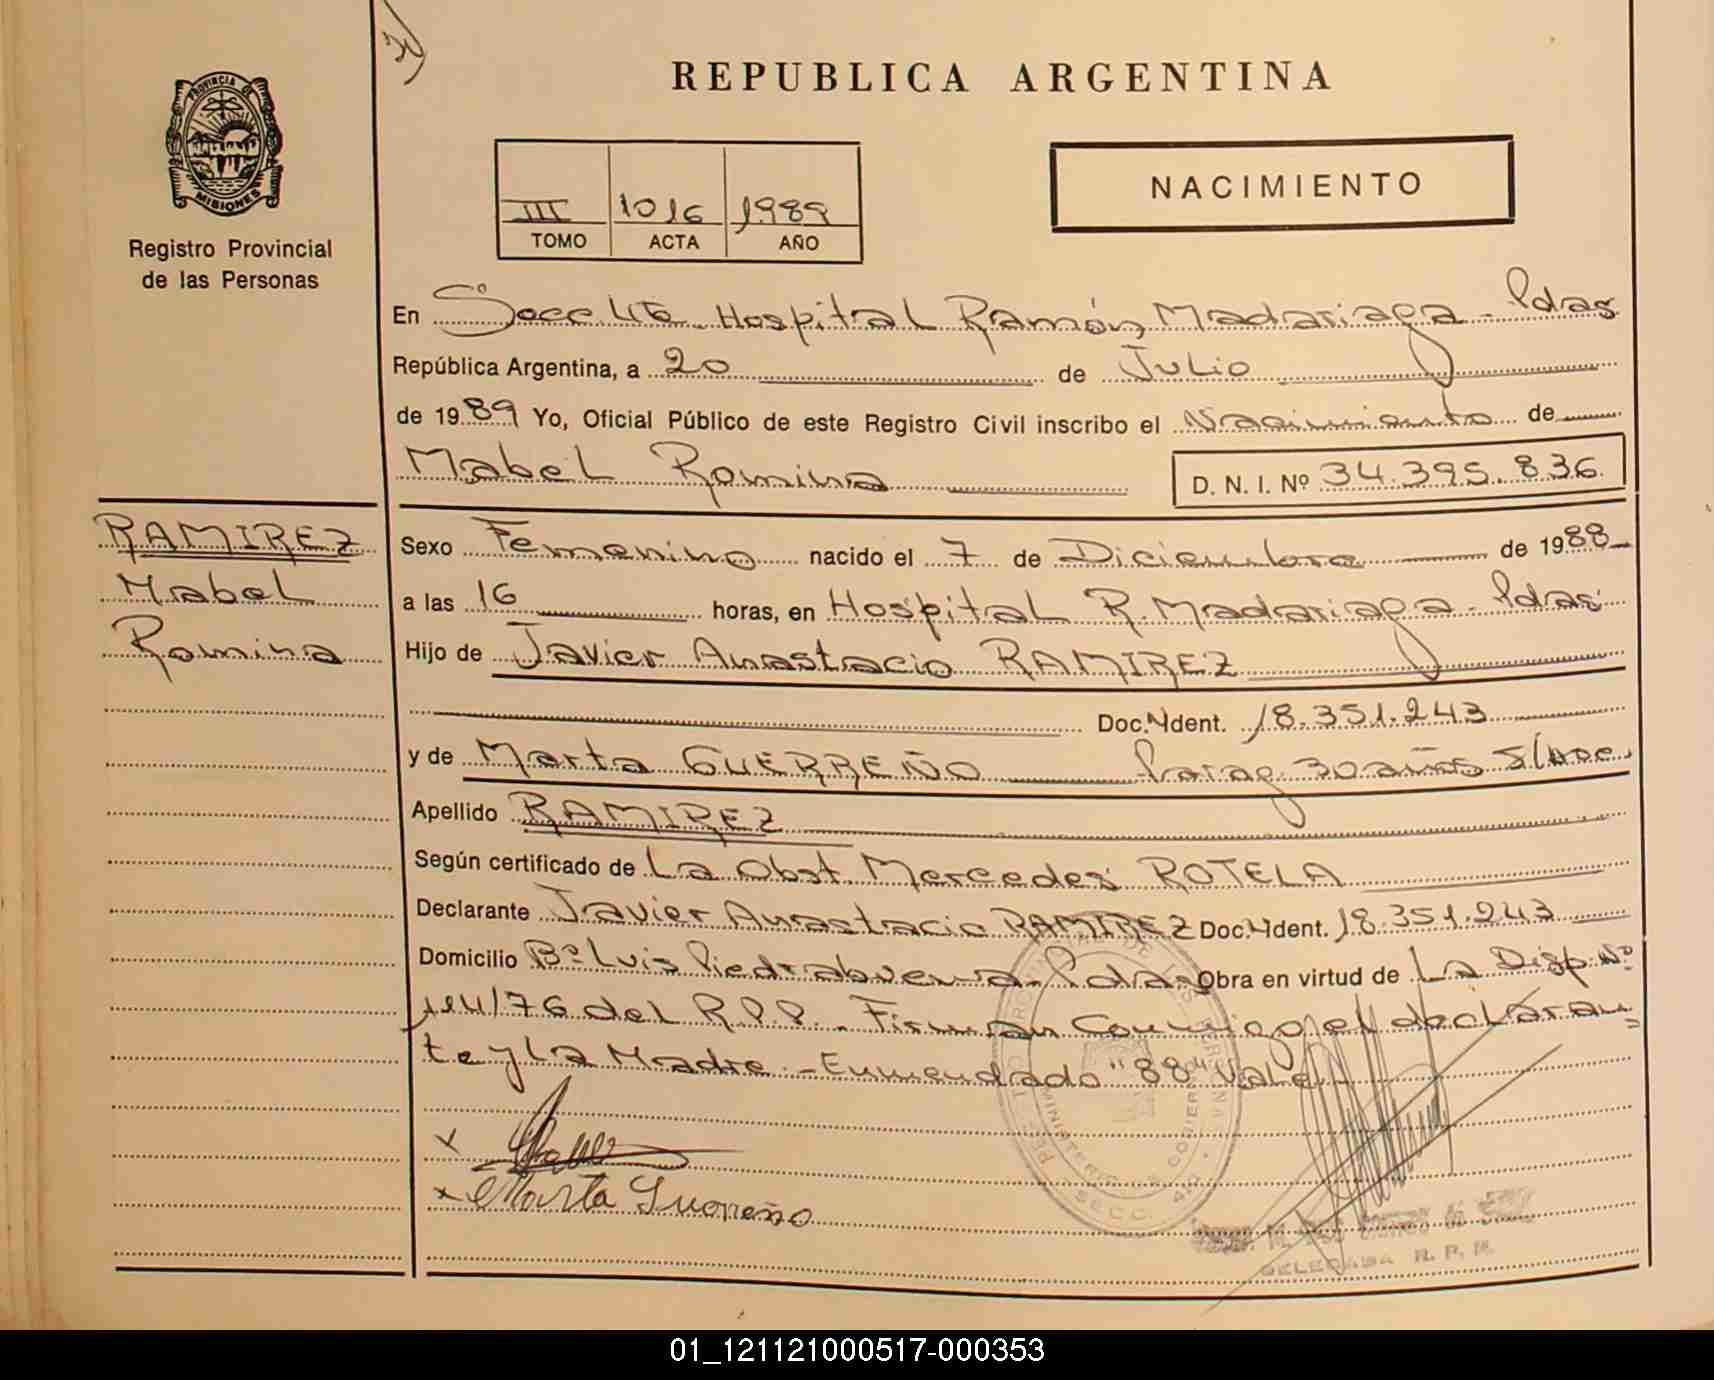 REPUBLICA ARGENTINA
PROVINCIA DE
MISIONES
Registro Provincial
de las Personas
III 1016 1989
TOMO ACTA AÑO
NACIMIENTO
En Secc. 4ta. Hospital Ramón Madariaga - Pdas
República Argentina, a 20 de Julio
de 1989 Yo, Oficial Público de este Registro Civil inscribo el Nacimiento de
Mabel Romina D. N. I. Nº 34.395.836
RAMIREZ
Mabel
Romina
Sexo Femenino nacido el 7 de Diciembre de 1988
a las 16 horas, en Hospital R. Madariaga - Pdas
Hijo de Javier Anastacio RAMIREZ
Doc. Ident. 18.351.243
y de Marta GUERREÑO Parag. 30 años S/Doc.
Apellido RAMIREZ
Según certificado de La Obst. Mercedes ROTELA
Declarante Javier Anastacio RAMIREZ Doc. Ident. 18.351.243
Domicilio Bº Luis Piedrabuena - Pdas Obra en virtud de La Disp. Nº
/76 del R.P.P. - Firman conmigo el declaran
te y la Madre - Enmendado "88" Vale
x
x Marta Guerreño
SECC. 4ta
DELEGADA R. P. P.
01_121121000517-000353